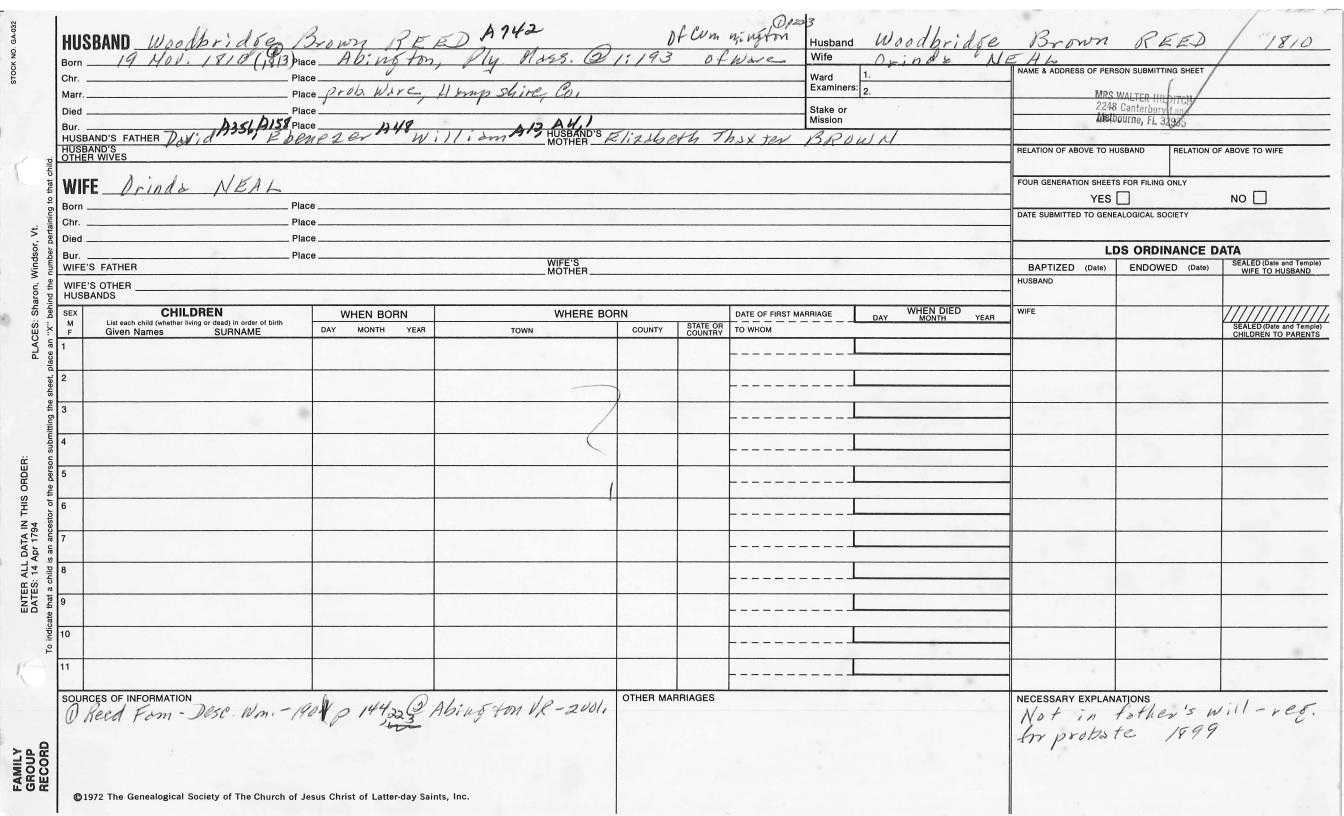 STOCK NO. GA-032
PLACES: Sharon, Windsor, Vt.
ENTER ALL DATA IN THIS ORDER:
DATES: 14 Apr 1794
To indicate that a child is an ancestor of the person submitting the sheet, place an "X" behind the number pertaining to that child.
FAMILY GROUP RECORD
HUSBAND Woodbridge Brown REED A742 of Cummington
Born 19 Nov. 1810 (1813) Place Abington, Ply Mass. ② 1:193 of Ware
Chr. Place
Marr. Place prob. Ware, Hampshire, Co.
Died Place
Bur. Place
HUSBAND'S FATHER David A356, A158 Ebenezer A48 William A13, A4,1 HUSBAND'S MOTHER Elizabeth Thaxter BROWN
HUSBAND'S OTHER WIVES
WIFE Orinda NEAL
Born Place
Chr. Place
Died Place
Bur. Place
WIFE'S FATHER WIFE'S MOTHER
WIFE'S OTHER HUSBANDS
Husband Woodbridge Brown REED 1810
Wife Orinda NEAL
Ward Examiners: 1.
2.
Stake or Mission
NAME & ADDRESS OF PERSON SUBMITTING SHEET
MRS WALTER
2248 Canterbury Lane
Melbourne, FL 32935
RELATION OF ABOVE TO HUSBAND RELATION OF ABOVE TO WIFE
FOUR GENERATION SHEETS FOR FILING ONLY
YES NO
DATE SUBMITTED TO GENEALOGICAL SOCIETY
LDS ORDINANCE DATA
BAPTIZED (Date) ENDOWED (Date) SEALED (Date and Temple) WIFE TO HUSBAND
HUSBAND
WIFE
SEALED (Date and Temple) CHILDREN TO PARENTS
SEX M F
CHILDREN
List each child (whether living or dead) in order of birth
Given Names SURNAME
WHEN BORN
DAY MONTH YEAR
WHERE BORN
TOWN COUNTY STATE OR COUNTRY
DATE OF FIRST MARRIAGE
TO WHOM
WHEN DIED
DAY MONTH YEAR
1
2
3
4
5
6
7
8
9
10
11
?
SOURCES OF INFORMATION
① Reed Fam - Desc. Wm. - 1901 p 144, 223 ② Abington VR - 2 vol.
OTHER MARRIAGES
NECESSARY EXPLANATIONS
Not in father's will - reg.
for probate 1899
©1972 The Genealogical Society of The Church of Jesus Christ of Latter-day Saints, Inc.